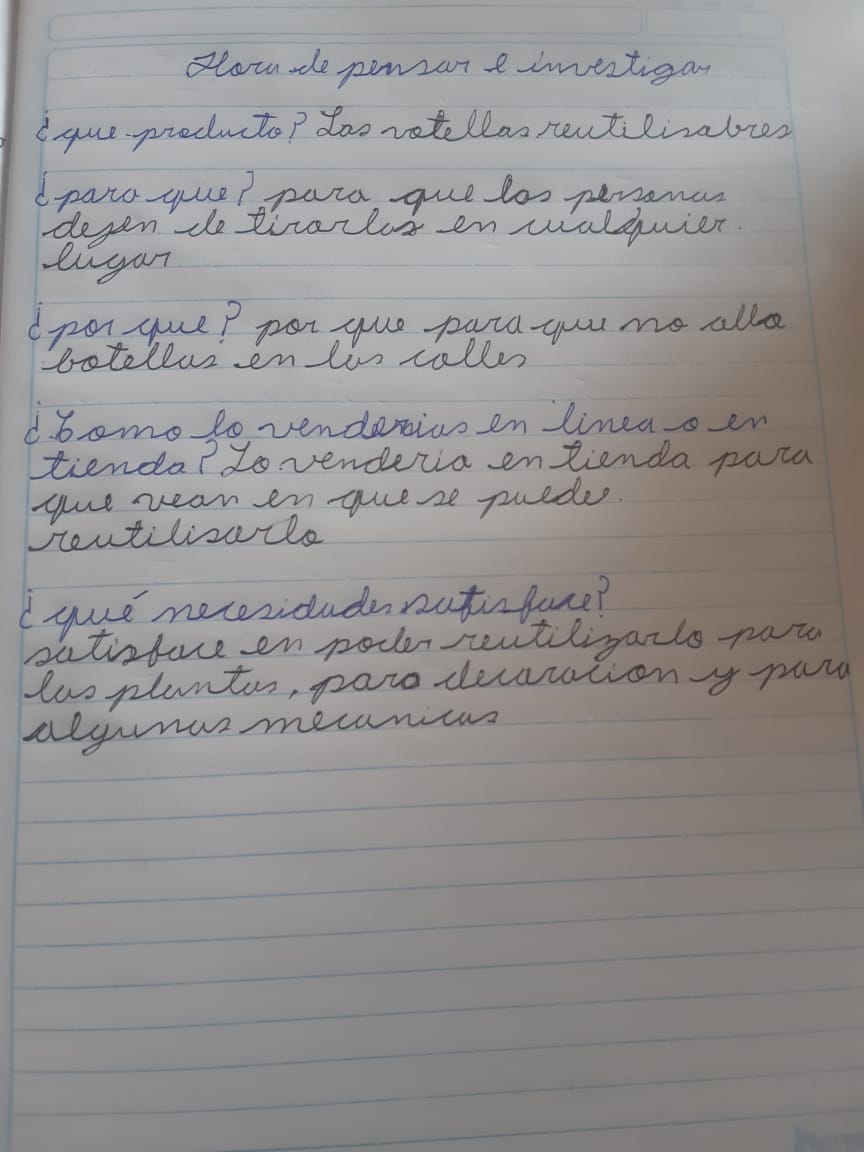 Hora de pensar e investigar
¿que producto? Las votellas reutilisabres
¿para que? para que las personas
dejen de tirarlas en cualquier.
lugar
¿por que? por que para que no alla
botellas en las calles
¿Como lo venderias en linea o en
tienda? Lo venderia en tienda para
que vean en que se puede.
reutilisarlo
¿qué necesidades satisface?
satisface en poder reutilizarlo para
las plantas, para decaracion y para
algunas mecanicas